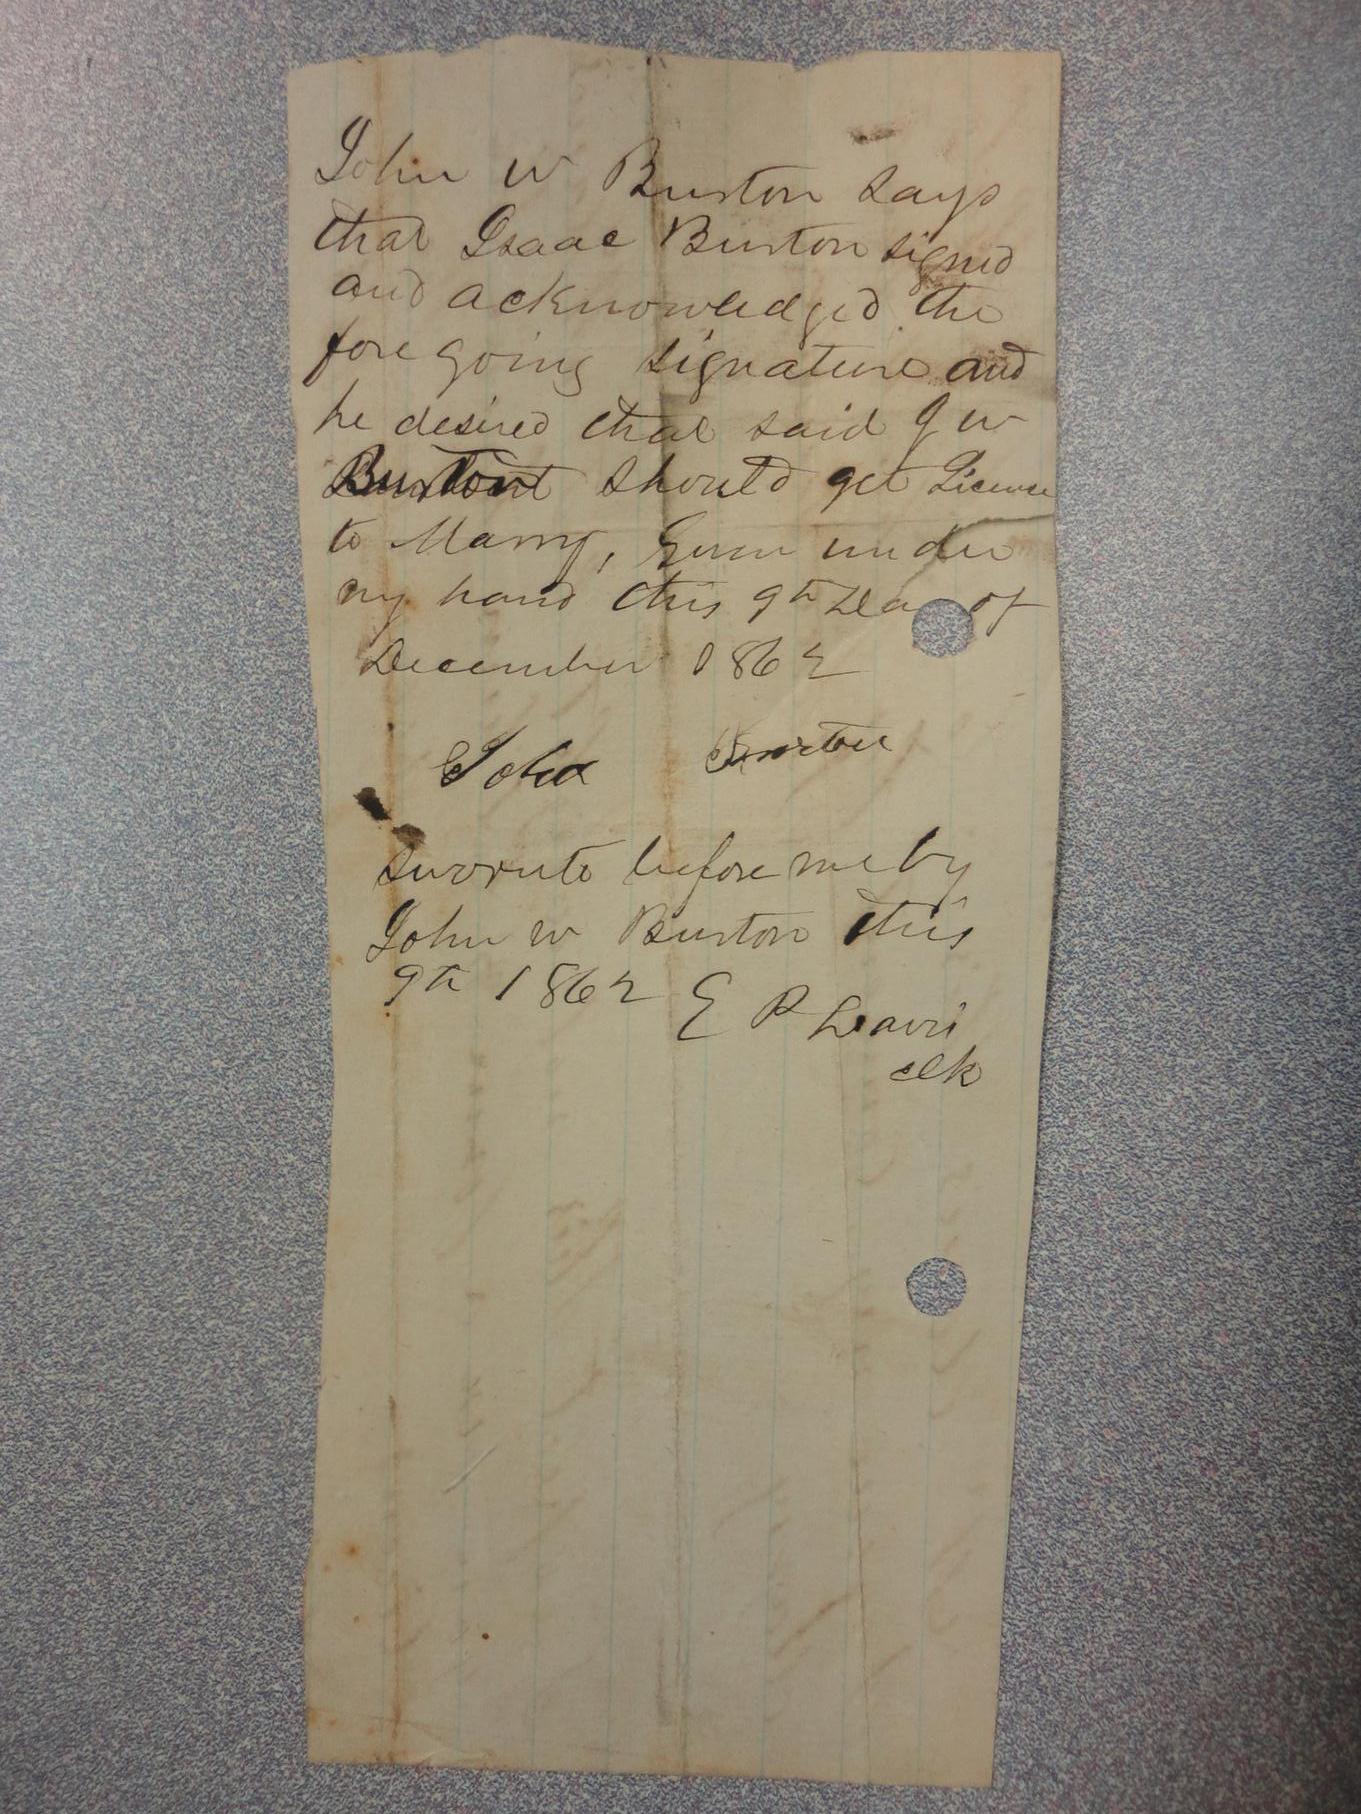 John W Burton Says
that Isaac Burton signed
and acknowledged the
fore going signature and
he desired that said J W
Burton should get License
to Marry, Given under
my hand this 9th Da of
December 1862
John Burton
Swornto before me by
John W Burton this
9th 1862 E P Davis
clk